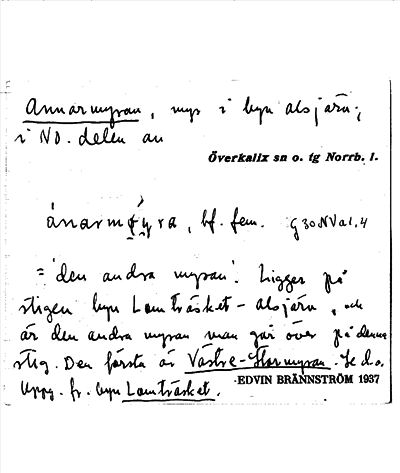 Annarmyran, myr i byn alsjärv;
i NO. delen av
Överkalix sn o. tg Norrb. l.
ánarmýra, bf. fem. G30NVa1,4
= 'den andra myran'. Ligger på
stigen byn Lomträsket - alsjärv, och
är den andra myran man går över på denna
stig. Den första är Västre-Stormyran. Se d.o.
Uppg. fr. byn Lomträsket.
EDVIN BRÄNNSTRÖM 1937